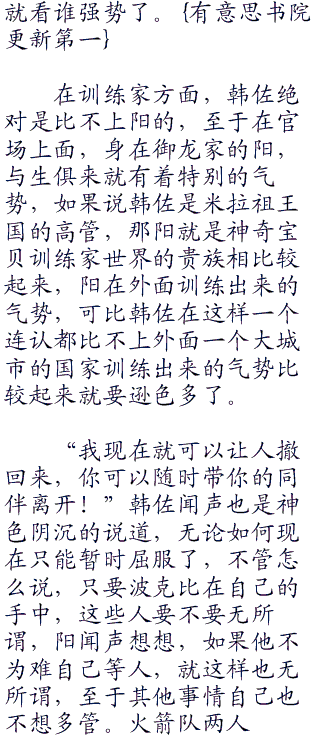 就看谁强势了。{有意思书院
更新第一}
在训练家方面，韩佐绝
对是比不上阳的，至于在官
场上面，身在御龙家的阳，
与生俱来就有着特别的气
势，如果说韩佐是米拉祖王
国的高管，那阳就是神奇宝
贝训练家世界的贵族相比较
起来，阳在外面训练出来的
气势，可比韩佐在这样一个
连认都比不上外面一个大城
市的国家训练出来的气势比
较起来就要逊色多了。
“我现在就可以让人撤
回来，你可以随时带你的同
伴离开！”韩佐闻声也是神
色阴沉的说道，无论如何现
在只能暂时屈服了，不管怎
么说，只要波克比在自己的
手中，这些人要不要无所
谓，阳闻声想想，如果他不
为难自己等人，就这样也无
所谓，至于其他事情自己也
不想多管。火箭队两人